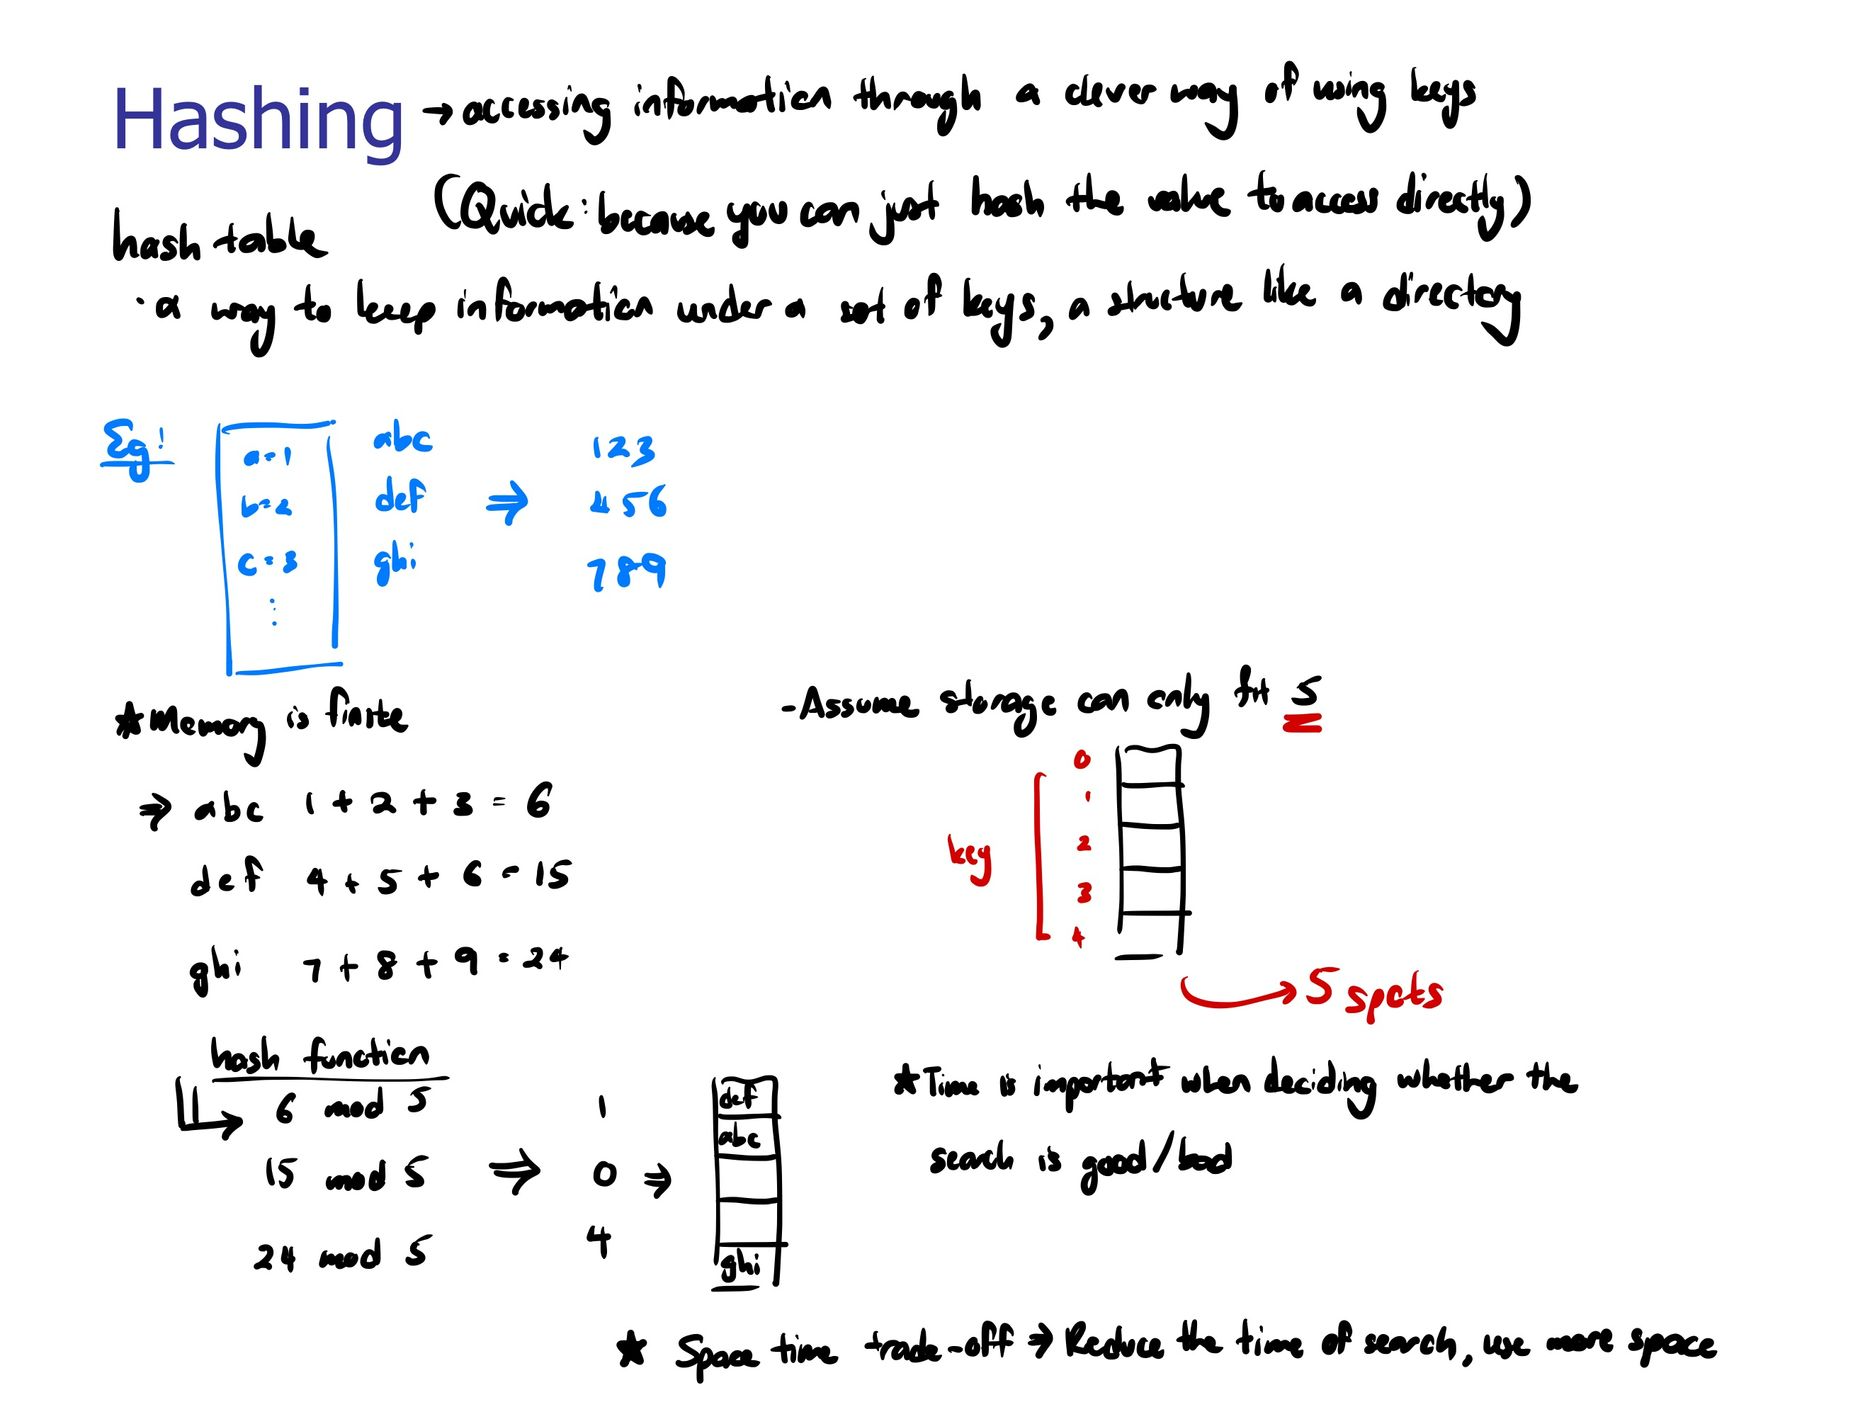 Hashing → accessing information through a clever way of using keys
(Quick: because you can just hash the value to access directly)
hash table
· a way to keep information under a set of keys, a structure like a directory
Eg:
a=1
b=2
c=3
⋮
abc
def
ghi
⇒
123
456
789
★ Memory is finite
⇒ abc 1 + 2 + 3 = 6
def 4 + 5 + 6 = 15
ghi 7 + 8 + 9 = 24
- Assume storage can only fit 5
key
0
1
2
3
4
→ 5 spots
hash function
6 mod 5
15 mod 5
24 mod 5
⇒
1
0
4
⇒
def
abc
ghi
★ Time is important when deciding whether the
search is good/bad
★ Space time trade-off ⇒ Reduce the time of search, use more space